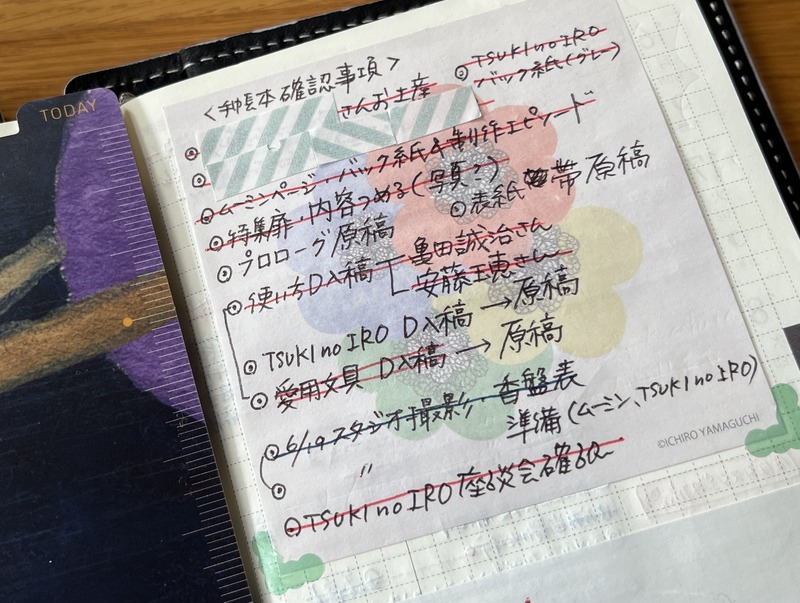 TODAY
<神長本確認事項>
TSUKI no IRO
バック紙(グレー)
さんお土産
ムーミンページ・バック紙&制作エピソード
特集扉・内容つめる(写真?)
表紙 帯原稿
プロローグ原稿
使い方D入稿 亀田誠治さん
安藤玉恵さん
TSUKI no IRO D入稿→原稿
愛用文具 D入稿→原稿
6/19スタジオ撮影・香盤表
〃 準備(ムーミン、TSUKI no IRO)
TSUKI no IRO座談会確認
©ICHIRO YAMAGUCHI